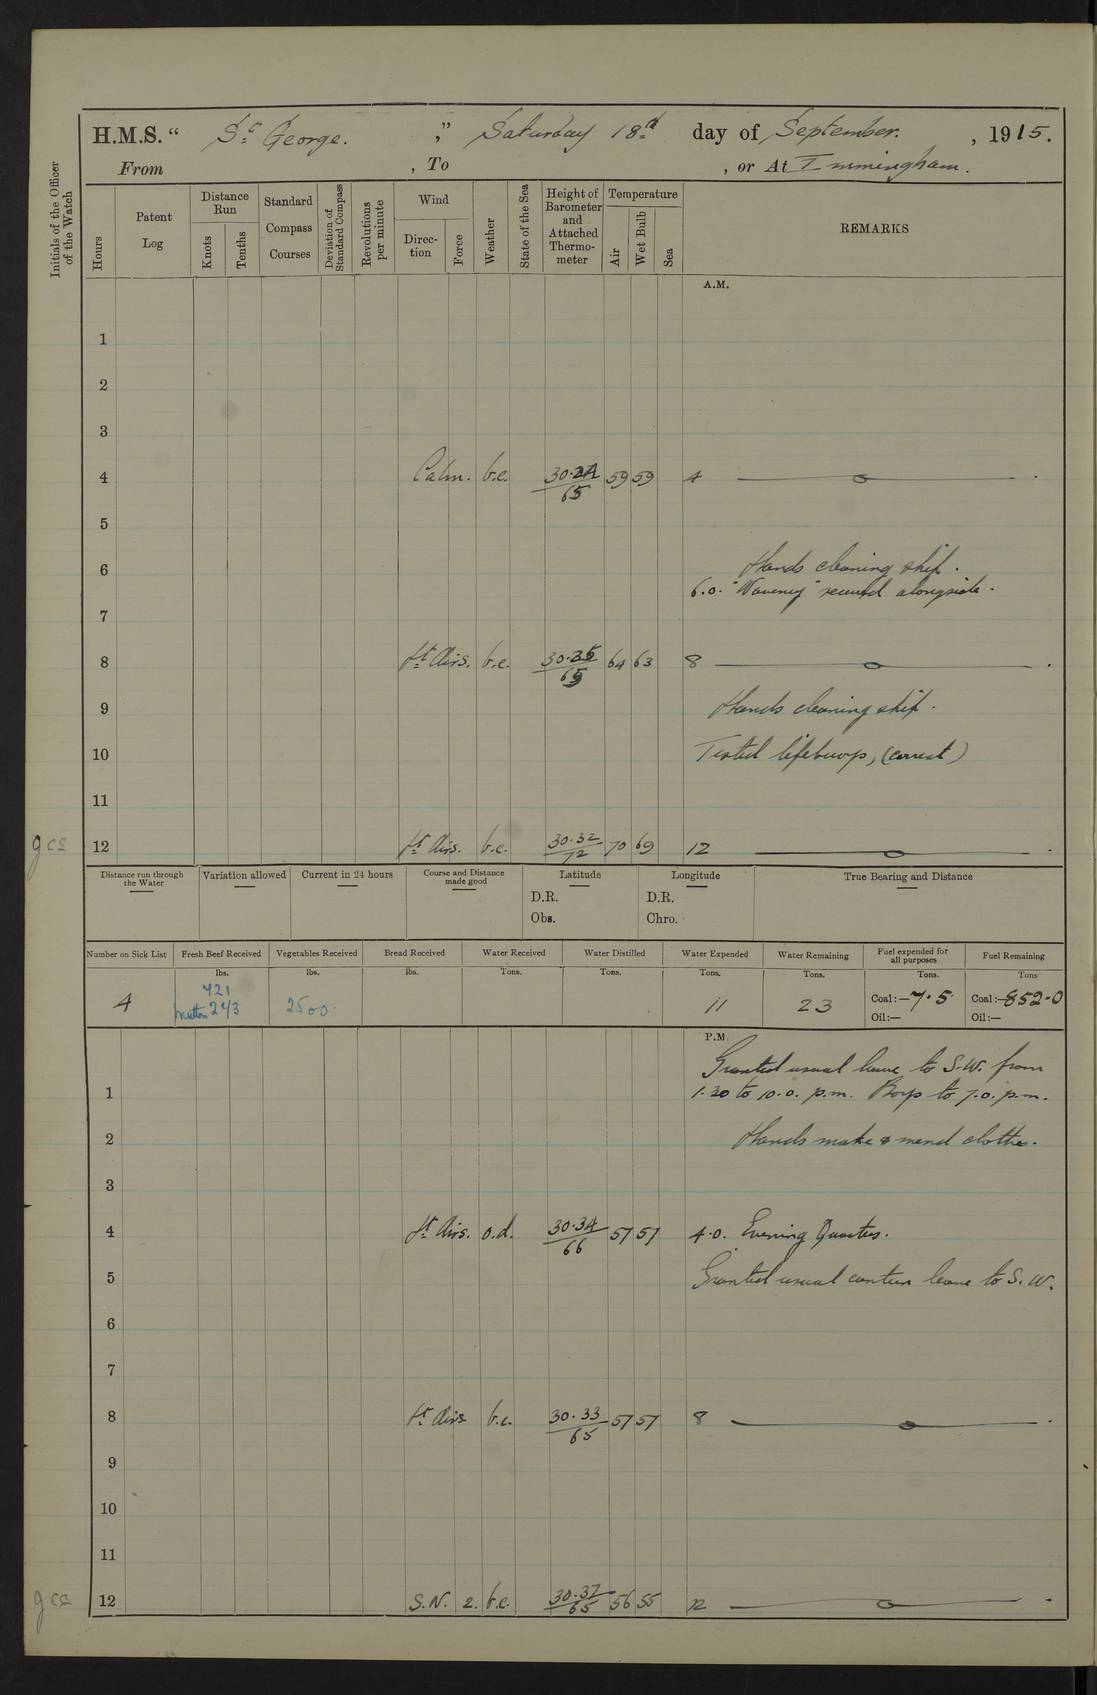 H.M.S. “ St George. ” Saturday 18th day of September. , 1915.
From , To , or At Immingham.
Initials of the Officer of the Watch
Hours
Patent Log
Distance Run
Knots
Tenths
Standard Compass Courses
Deviation of Standard Compass
Revolutions per minute
Wind
Direction
Force
Weather
State of the Sea
Height of Barometer and Attached Thermometer
Temperature
Air
Wet Bulb
Sea
REMARKS
A.M.
1
2
3
4 Calm. b.c. 30.24/65 59 59 4
5
6 Hands cleaning ship.
6.0. "Waveney" secured alongside.
7
8 Lt Airs. b.c. 64 63 8
9 Hands cleaning ship.
10 Tested lifebuoys, (correct)
11
gcs 12 Lt Airs. b.c. 30.32/72 70 69 12
Distance run through the Water
Variation allowed
Current in 24 hours
Course and Distance made good
Latitude
D.R.
Obs.
Longitude
D.R.
Chro.
True Bearing and Distance
Number on Sick List
Fresh Beef Received
Vegetables Received
Bread Received
Water Received
Water Distilled
Water Expended
Water Remaining
Fuel expended for all purposes
Fuel Remaining
lbs. lbs. lbs. Tons. Tons. Tons. Tons. Tons. Tons
4
421
mutton 243
2500
11
23
Coal:— 7.5
Oil:—
Coal:— 852.0
Oil:—
P.M.
Granted usual leave to S.W. from
1 1.20 to 10.0. p.m. Boys to 7.0. p.m.
2 Hands make & mend clothes.
3
4 Lt Airs. o.d. 30.34/66 57 57 4.0. Evening Quarters.
5 Granted usual canteen leave to S.W.
6
7
8 Lt Airs b.c. 30.33/65 57 57 8
9
10
11
gcs 12 2. b.c. 30.37/65 56 55 12